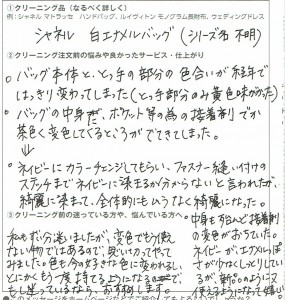 ①クリーニング品（なるべく詳しく）
例：シャネル マトラッセ ハンドバッグ、ルイヴィトン モノグラム長財布、ウェディングドレス
シャネル 白エナメルバッグ（シリーズ名 不明）
②クリーニング注文前の悩みや良かったサービス・仕上がり
・バッグ本体と、とっ手の部分の色合いが経年で
はっきり変わってしまった（とっ手部分のみ黄色味がかった）
・バッグの中身が、ポケット等の為の接着剤でか
茶色く変色してるところがでてきてました。
↓
・ネイビーにカラーチェンジしてもらい、ファスナー縫い付けの
ステッチまでネイビーに染まるか分からないと言われたが、
綺麗に染まって、全体的にもムラなく綺麗になった。
③クリーニング前の迷っている方や、悩んでいる方へ
私もずい分迷いましたが、変色でもう使え
ない物ではあるので、思いきってやって
みました。色も今の好きな色に変われるし、
とにかくもう一度持てるようになるので、
もし迷っているなら、おすすめします。
中身も殆んど接着剤
の変色がおちていた。
ネイビーがエナメルぽ
さがなくしっとりしてい
るが、新品のように